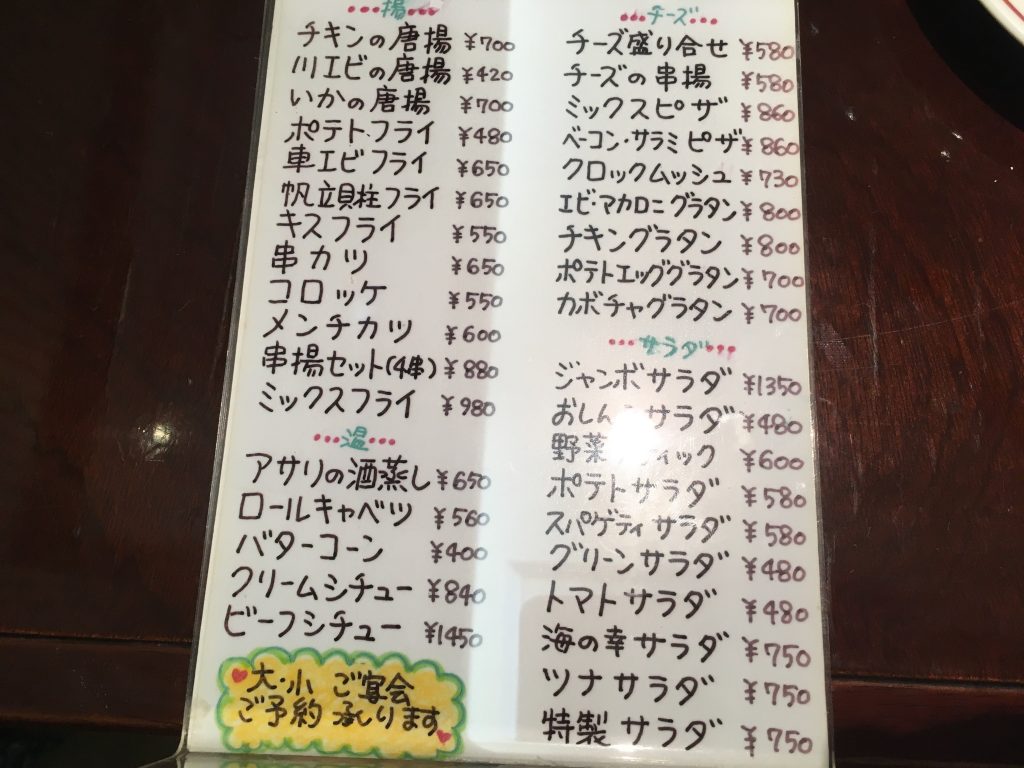 揚
チキンの唐揚 ¥700
川エビの唐揚 ¥420
いかの唐揚 ¥700
ポテトフライ ¥480
車エビフライ ¥650
帆立貝柱フライ ¥650
キスフライ ¥550
串カツ ¥650
コロッケ ¥550
メンチカツ ¥600
串揚セット(4串) ¥880
ミックスフライ ¥980
温
アサリの酒蒸し ¥650
ロールキャベツ ¥560
バターコーン ¥400
クリームシチュー ¥840
ビーフシチュー ¥1450
大・小 ご宴会
ご予約 承ります
チーズ
チーズ盛り合せ ¥580
チーズの串揚 ¥580
ミックスピザ ¥860
ベーコン・サラミピザ ¥860
クロックムッシュ ¥730
エビ・マカロニグラタン ¥800
チキングラタン ¥800
ポテトエッググラタン ¥700
カボチャグラタン ¥700
サラダ
ジャンボサラダ ¥1350
おしんこサラダ ¥480
野菜スティック ¥600
ポテトサラダ ¥580
スパゲティサラダ ¥580
グリーンサラダ ¥480
トマトサラダ ¥480
海の幸サラダ ¥750
ツナサラダ ¥750
特製サラダ ¥750